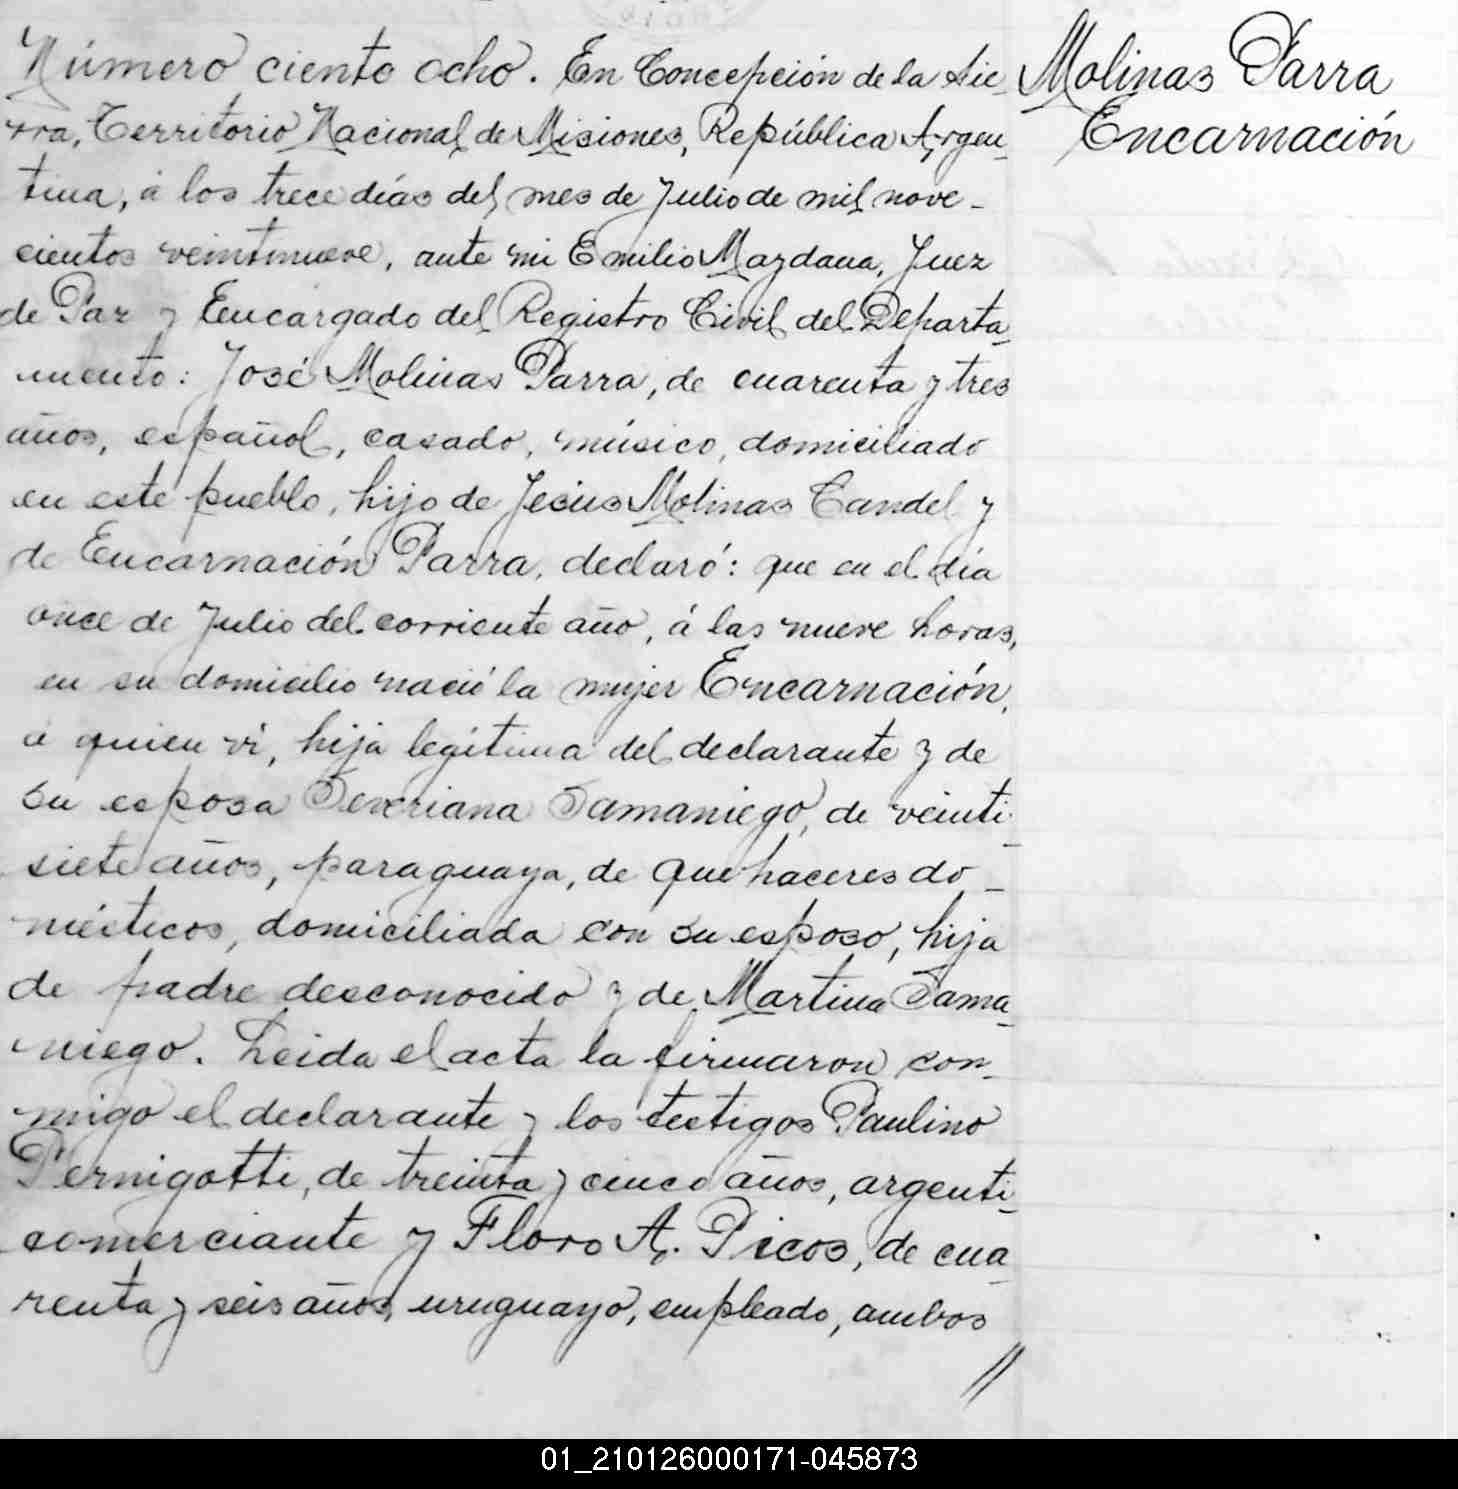 Número ciento ocho. En Concepción de la Sie
rra, Territorio Nacional de Misiones, República Argen_
tina, á los trece días del mes de Julio de mil nove_
cientos veintinueve, ante mi Emilio Maydana, Juez
de Paz y Encargado del Registro Civil del Departa_
mento: José Molinas Parra, de cuarenta y tres
años, español, casado, músico, domiciliado
en este pueblo, hijo de Jesús Molinas Candel y
de Encarnación Parra, declaró: que en el día
once de Julio del corriente año, á las nueve horas,
en su domicilio nació la mujer Encarnación,
á quien ví, hija legítima del declarante y de
su esposa Severiana Samaniego, de veinti_
siete años, paraguaya, de quehaceres do_
mésticos, domiciliada con su esposo, hija
de padre desconocido y de Martina Sama_
niego. Leida el acta la firmaron con_
migo el declarante y los testigos Paulino
Pernigotti, de treinta y cinco años, argenti_
comerciante y Floro A. Picos, de cua_
renta y seis años, uruguayo, empleado, ambos
//
Molinas Parra
Encarnación
01_210126000171-045873